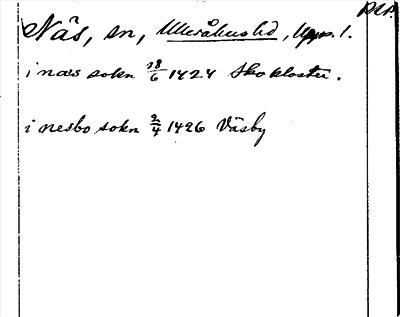 DMP.
Näs, sn, Ulleråkers hd, Upps. l.
i næs sokn 18/6 1424 Skokloster.
i nesbo sokn 2/4 1426 Väsby